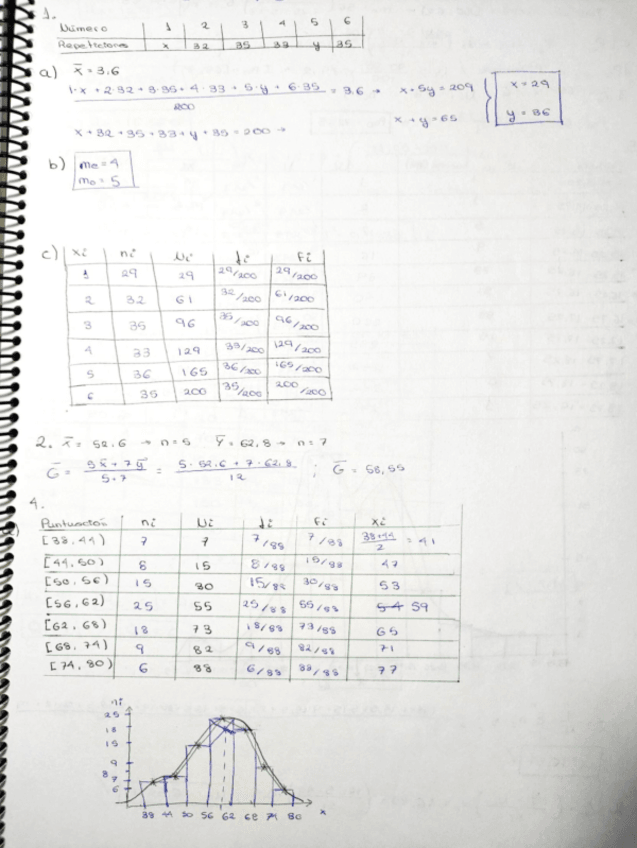 1.
Número 1 2 3 4 5 6
Repeticiones x 32 35 33 y 35
a) x̄ = 3.6
1·x + 2·32 + 3·35 + 4·33 + 5·y + 6·35 / 200 = 3.6 → x + 5y = 209 { x = 29
x + y = 65 y = 36
x + 32 + 35 + 33 + y + 35 = 200 →
b) me = 4
mo = 5
c) xi ni Ni fi Fi
1 29 29 29/200 29/200
2 32 61 32/200 61/200
3 35 96 35/200 96/200
4 33 129 33/200 129/200
5 36 165 36/200 165/200
6 35 200 35/200 200/200
2. x̄ = 52.6 → n = 5 ȳ = 62,8 → n = 7
G̅ = 5x̄ + 7ȳ / 5·7 = 5·52.6 + 7·62.8 / 12 ; G̅ = 58,55
4.
Puntuación ni Ni fi Fi xi
[38, 44) 7 7 7/88 7/88 38+44/2 = 41
[44, 50) 8 15 8/88 15/88 47
[50, 56) 15 30 15/88 30/88 53
[56, 62) 25 55 25/88 55/88 54 59
[62, 68) 18 73 18/88 73/88 65
[68, 74) 9 82 9/88 82/88 71
[74, 80) 6 88 6/88 88/88 77
ni
25
18
15
9
8
7
6
38 44 50 56 62 68 74 80 x